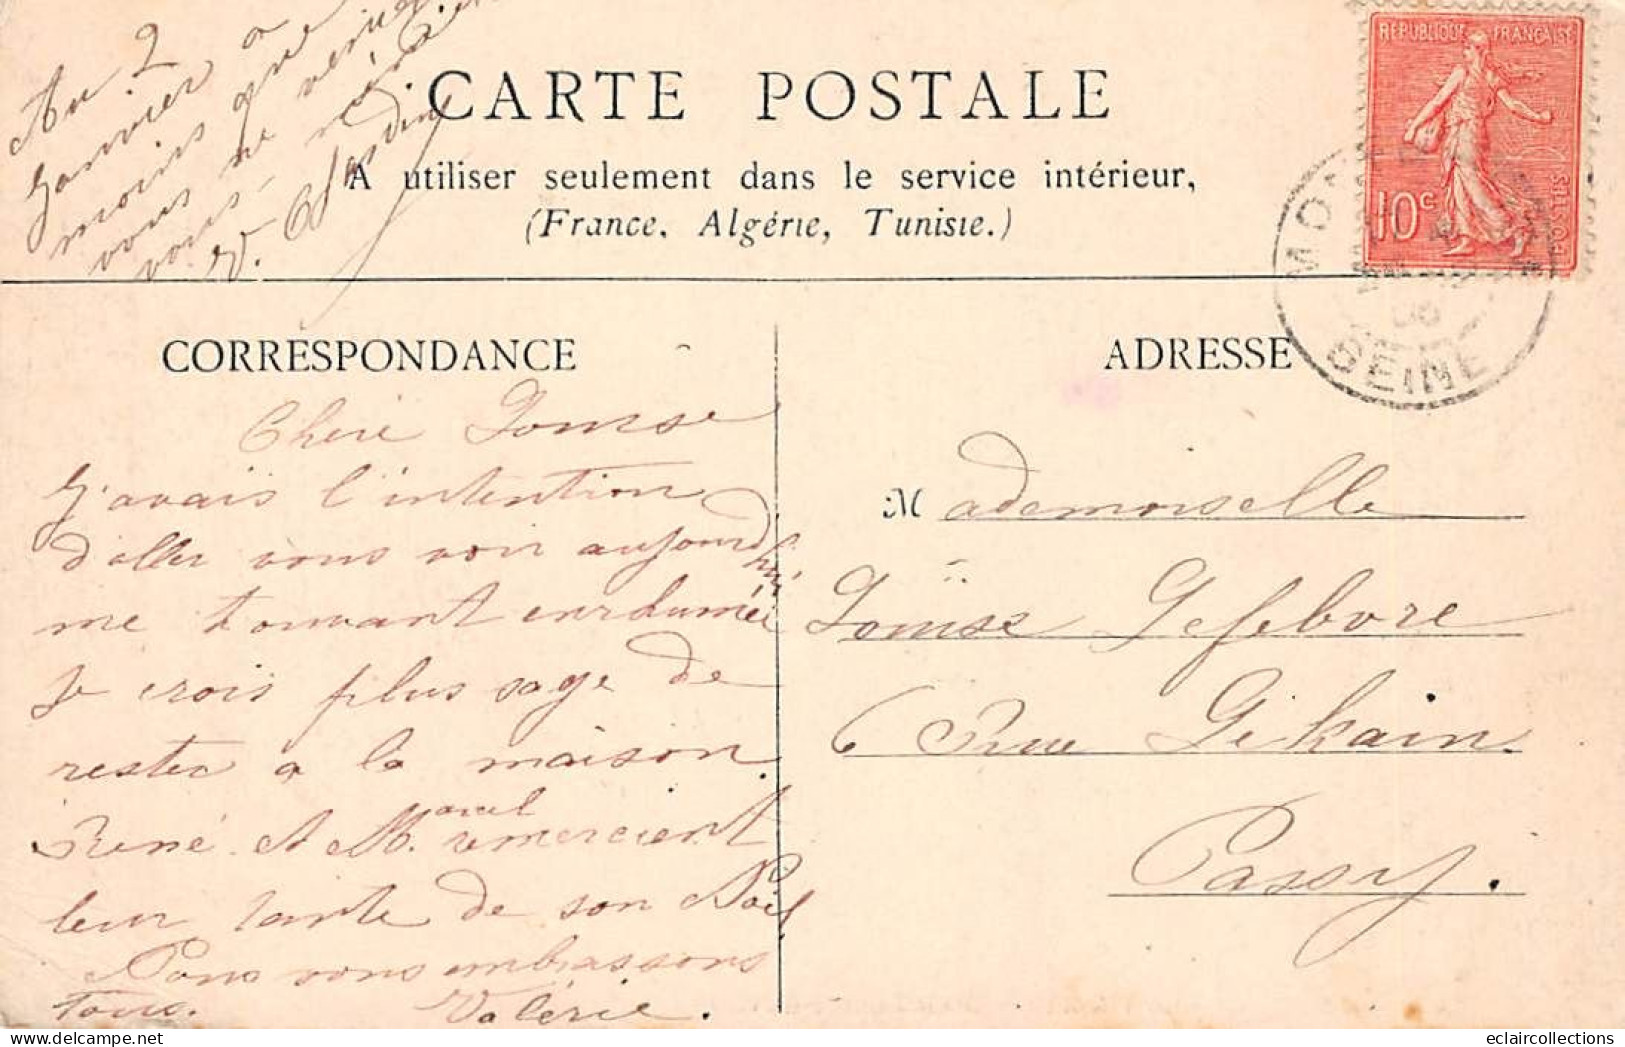 Au 2
Janvier a
moins que
vous ne veniez
vous-même
V.
CARTE POSTALE
A utiliser seulement dans le service intérieur,
(France, Algérie, Tunisie.)
REPUBLIQUE FRANÇAISE
10c
POSTES
SEINE
CORRESPONDANCE
ADRESSE
Chère Louise
J'avais l'intention
d'aller vous voir aujourd'hui
me trouvant enrhumée
Je crois plus sage de
rester a la maison.
René et Marcel remercient
leur tante de son Noël
Nous vous embrassons
tous. Valérie.
Mademoiselle
Louise Lefebvre
6 Rue Lekain
Passy.
eclaircollections